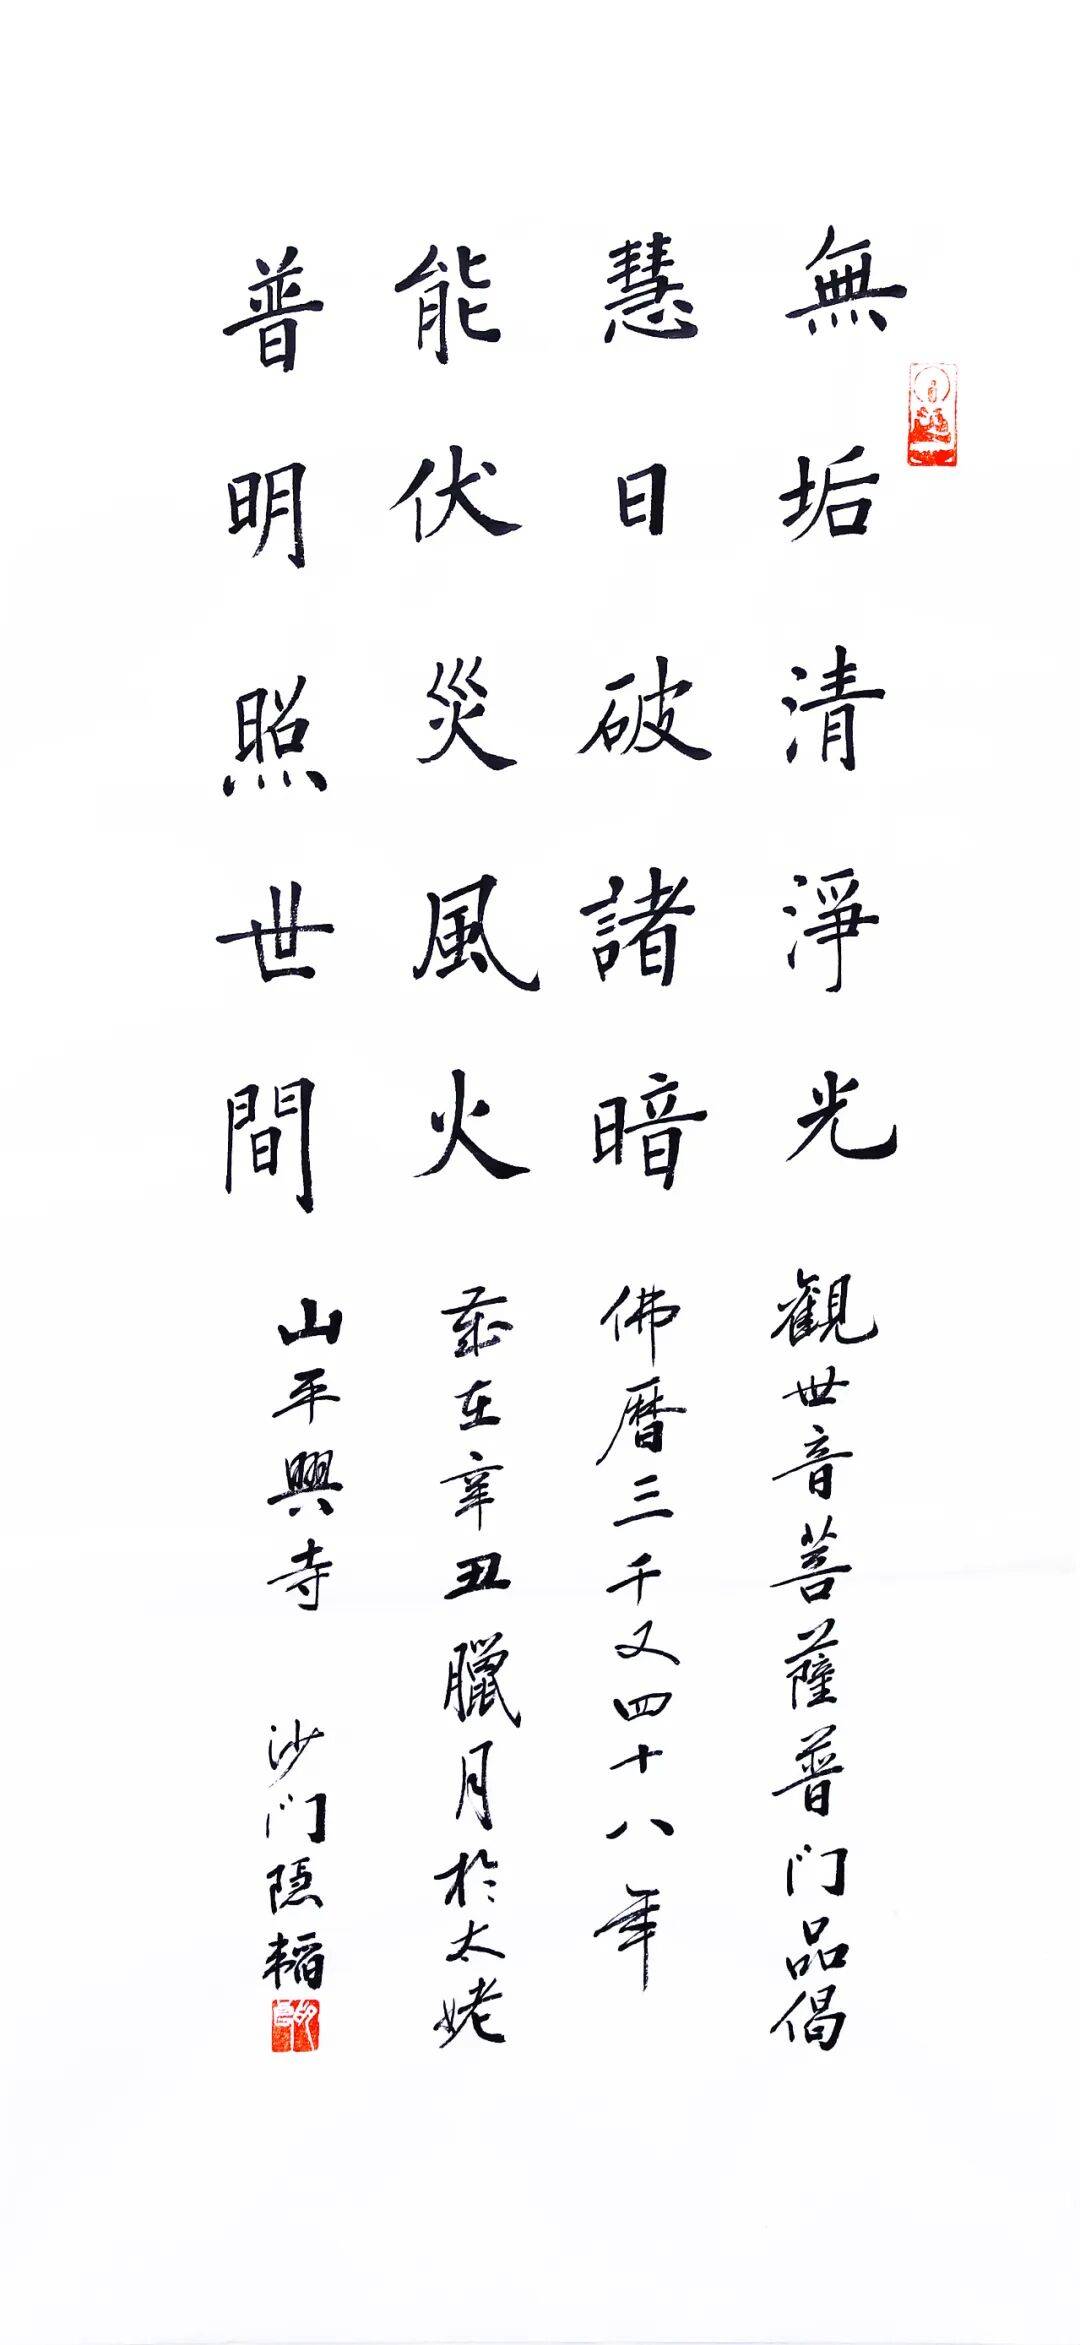 無垢清淨光
慧日破諸暗
能伏災風火
普明照世間
觀世音菩薩普门品偈
佛曆三千又四十八年
歲在辛丑臘月於太姥
山平興寺 沙门隱韜